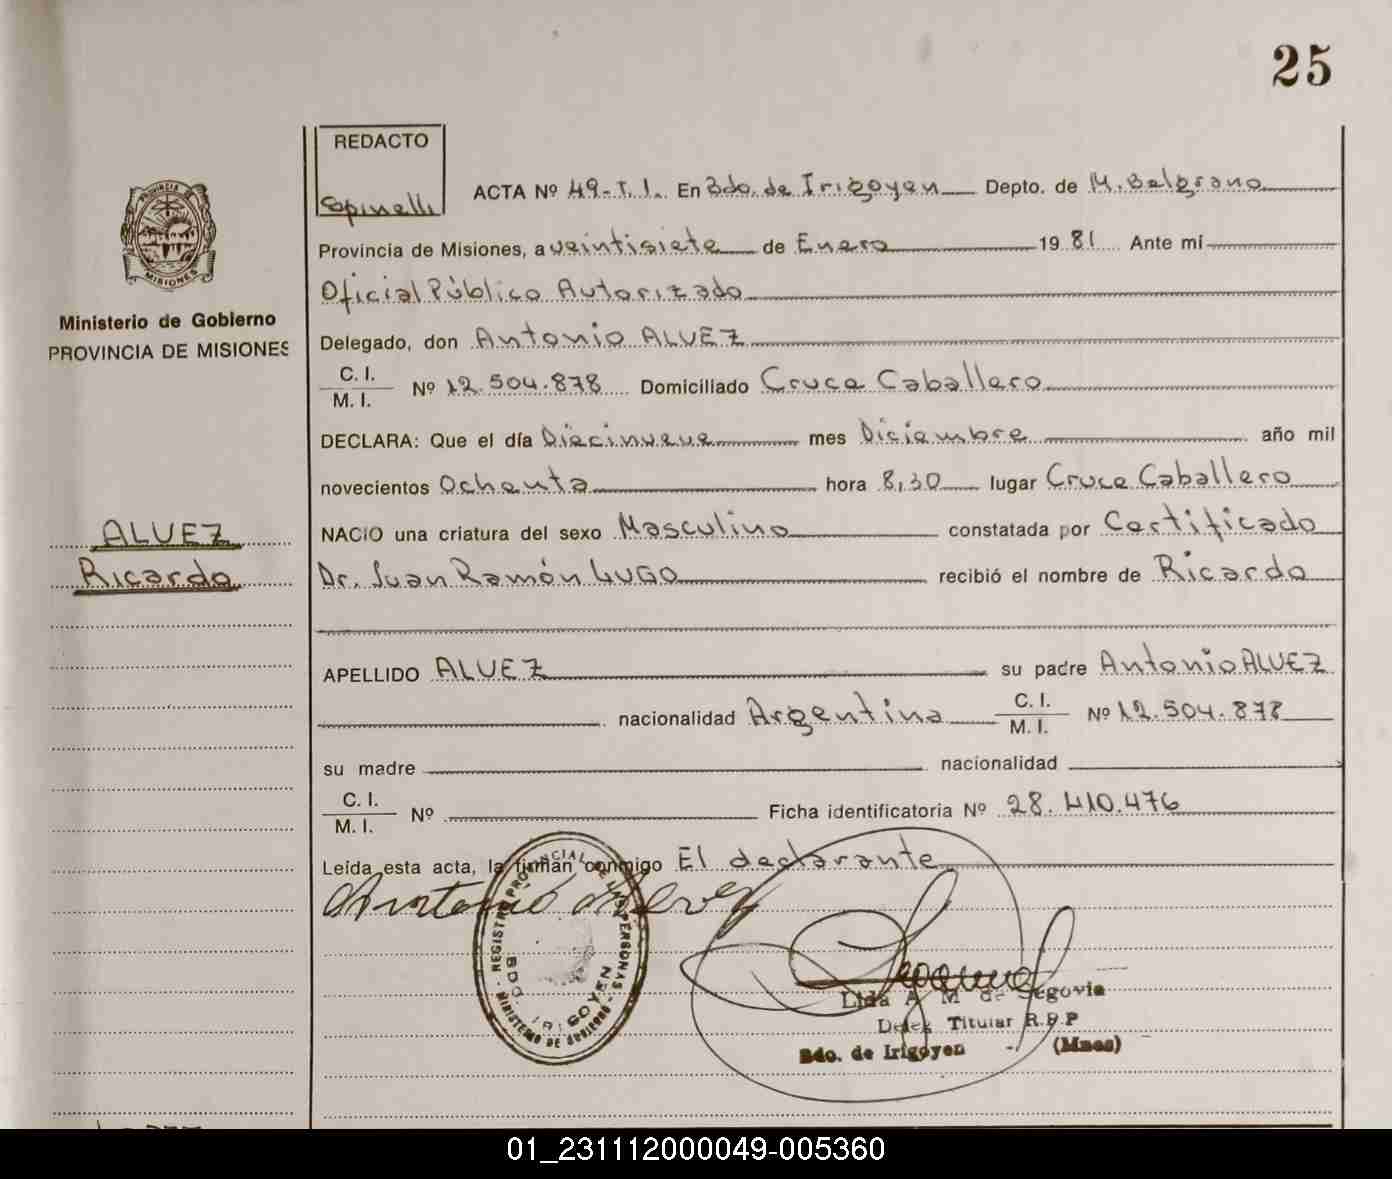 25
REDACTO
Spinelli
ACTA Nº 49-T.1. En Bdo. de Irigoyen Depto. de M. Belgrano
Provincia de Misiones, a veintisiete de Enero 1981 Ante mí
Oficial Público Autorizado
Delegado, don Antonio ALVEZ
C. I.
M. I. Nº 12.504.878 Domiciliado Cruce Caballero
DECLARA: Que el día Diecinueve mes Diciembre año mil
novecientos Ochenta hora 8,30 lugar Cruce Caballero
NACIO una criatura del sexo Masculino constatada por Certificado
Dr. Juan Ramón LUGO recibió el nombre de Ricardo
APELLIDO ALVEZ su padre Antonio ALVEZ
nacionalidad Argentina C. I.
M. I. Nº 12.504.878
su madre nacionalidad
C. I.
M. I. Nº Ficha identificatoria Nº 28.410.476
Leída esta acta, la firman conmigo El declarante
Antonio Alvez
PROVINCIA DE
MISIONES
Ministerio de Gobierno
PROVINCIA DE MISIONES
ALVEZ
Ricardo
REGISTRO PROVINCIAL DE LAS PERSONAS
BDO. IRIGOYEN
MINISTERIO DE GOBIERNO
Lida A M de Segovia
Deleg Titular R.P.P
Bdo. de Irigoyen - (Mnes)
01_231112000049-005360